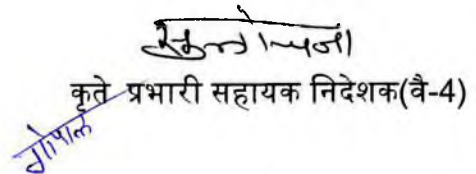 कृते प्रभारी सहायक निदेशक(वै-4)
गोपाल